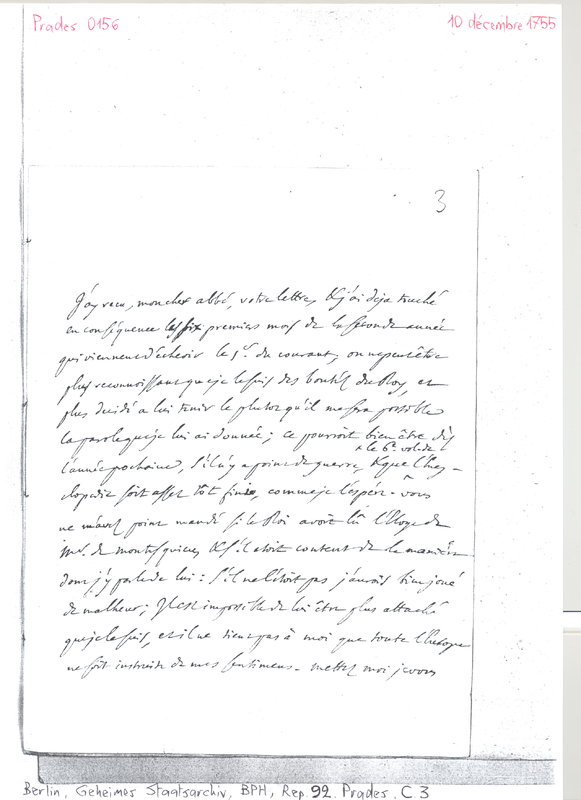 Prades 0156
10 décembre 1755
3
J'ay recu, mon cher abbé, votre lettre, & j'ai deja touché
en conséquence les six premiers mois de la seconde année
qui viennent d'échoir le 1er. du courant, on ne peut être
plus reconnoissant que je le suis des bontés du Roy, et
plus decidé a lui tenir le plutot qu'il me sera possible
la parole que je lui ai donnée; ce pourroit bien être dès
^ le 6e. vol. de
l'année prochaine, s'il n'y a point de guerre, & que l'Ency-
clopedie soit assez tôt finie, comme je l'espére. Vous
ne m'avez point mandé si le Roi avoit lû l'Eloge de
Mr. de Montesquieu, & s'il etoit content de la manière
dont j'y parle de lui: s'il ne l'étoit pas j'aurois bien joué
de malheur; Il est impossible de lui être plus attaché
que je le suis, et il ne tient pas à moi que toute l'Europe
ne soit instruite de mes sentimens. mettez moi je vous
Berlin, Geheimes Staatsarchiv, BPH, Rep. 92. Prades. C. 3